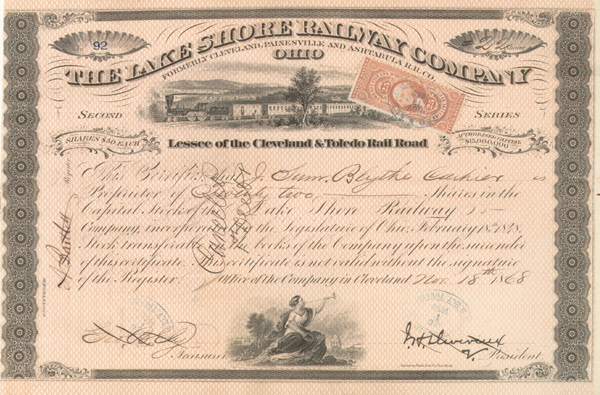 92
THE LAKE SHORE RAILWAY COMPANY
FORMERLY CLEVELAND, PAINESVILLE AND ASHTABULA R.R. CO.
OHIO
SECOND SERIES
SHARES $50 EACH
AUTHORISED CAPITAL $15,000,000
Lessee of the Cleveland & Toledo Rail Road
This Certifies that J. Sam. Blythe Cashier is
Proprietor of Twenty two Shares in the
Capital Stock of the Lake Shore Railway
Company, incorporated by the Legislature of Ohio, February 18th 1848,
Stock transferable on the books of the Company upon the surrender
of this certificate. This certificate is not valid without the signature
of the Register. Office of the Company in Cleveland Nov. 18th 1868
Cancelled
Register
Treasurer
President